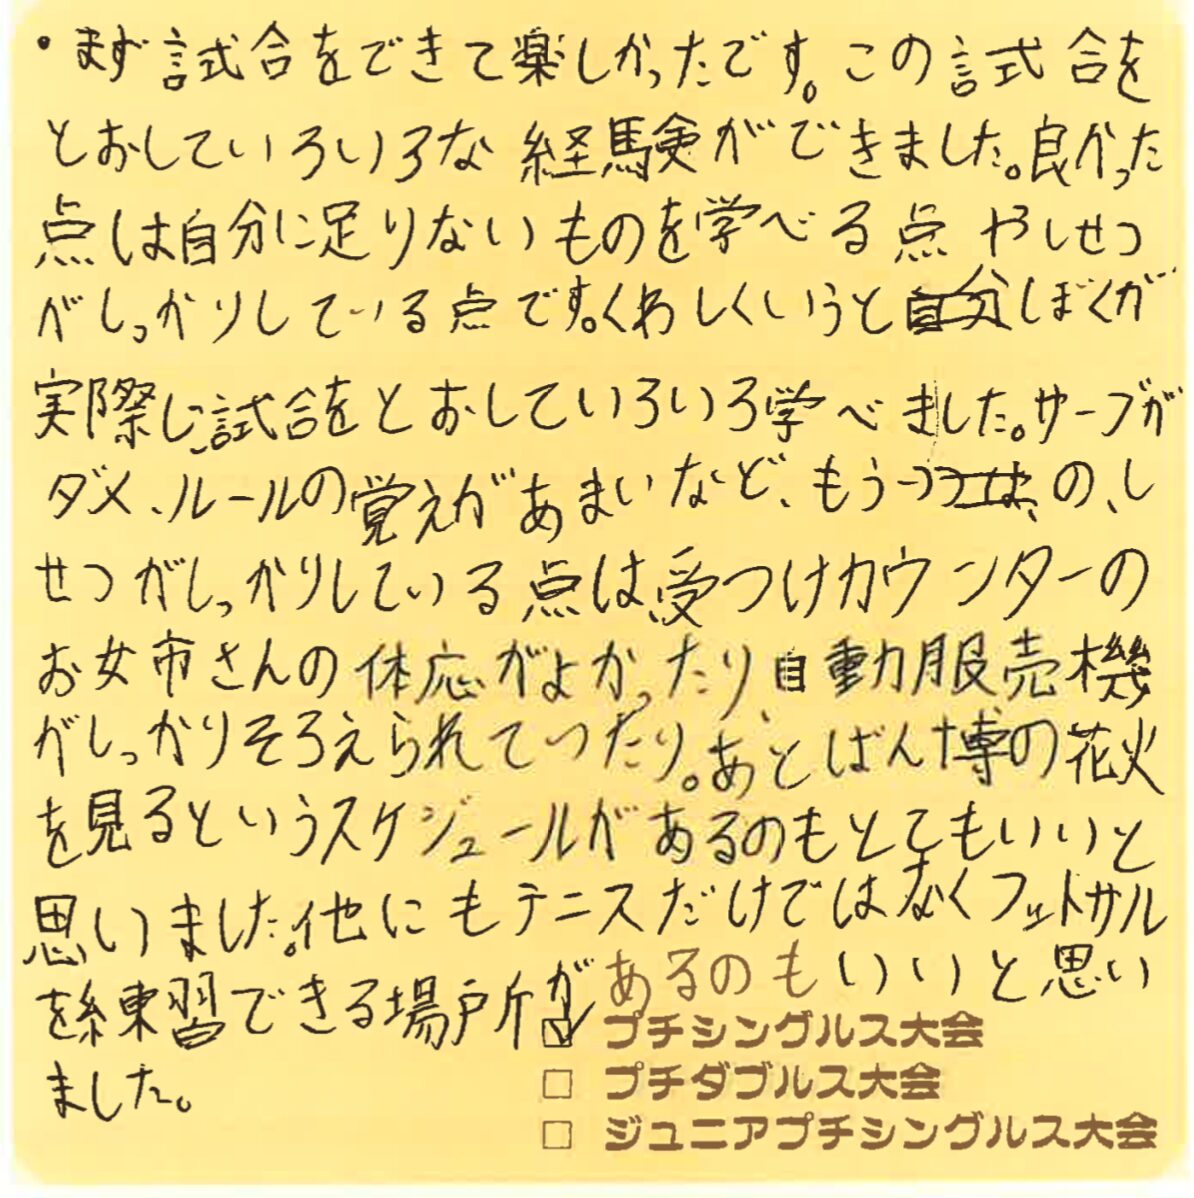 ・まず試合をできて楽しかったです。この試合を
とおしていろいろな経験ができました。良かった
点は自分に足りないものを学べる点やしせつ
がしっかりしている点です。くわしくいうと自分ぼくが
実際に試合をとおしていろいろ学べました。サーブが
ダメ、ルールの覚えがあまいなど、もう一つの、し
せつがしっかりしている点は、受つけカウンターの
お姉さんの体応がよかったり、自動服売機
がしっかりそろえられてったり。あとばん博の花火
を見るというスケジュールがあるのもとてもいいと
思いました。他にもテニスだけではなくフットサル
を練習できる場所があるのもいいと思い
ました。
☑ プチシングルス大会
□ プチダブルス大会
□ ジュニアプチシングルス大会